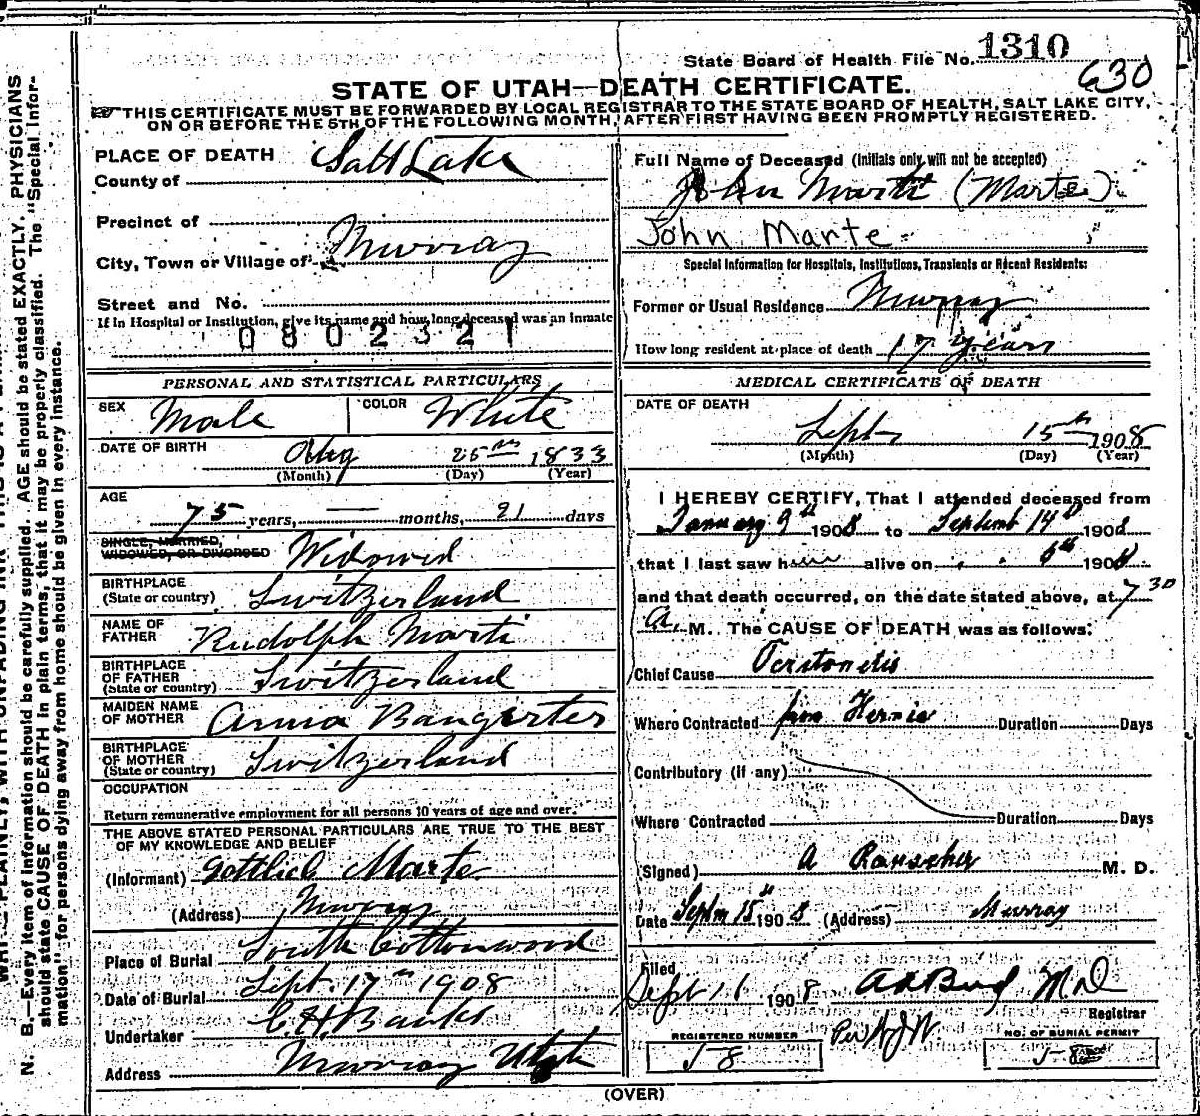 State Board of Health File No. 1310
630
STATE OF UTAH—DEATH CERTIFICATE.
THIS CERTIFICATE MUST BE FORWARDED BY LOCAL REGISTRAR TO THE STATE BOARD OF HEALTH, SALT LAKE CITY,
ON OR BEFORE THE 5TH OF THE FOLLOWING MONTH, AFTER FIRST HAVING BEEN PROMPTLY REGISTERED.
N. B.—Every item of information should be carefully supplied. AGE should be stated EXACTLY. PHYSICIANS
should state CAUSE OF DEATH in plain terms, that it may be properly classified. The "Special Infor-
mation" for persons dying away from home should be given in every instance.
PLACE OF DEATH
County of Salt Lake
Precinct of
City, Town or Village of Murray
Street and No.
If in Hospital or Institution, give its name and how long deceased was an inmate
0802321
PERSONAL AND STATISTICAL PARTICULARS
SEX Male COLOR White
DATE OF BIRTH Aug 25th 1833
(Month) (Day) (Year)
AGE
75 years, — months, 21 days
SINGLE, MARRIED,
WIDOWED, OR DIVORCED Widowed
BIRTHPLACE
(State or country) Switzerland
NAME OF
FATHER Rudolph Marti
BIRTHPLACE
OF FATHER
(State or country) Switzerland
MAIDEN NAME
OF MOTHER Anna Bangerter
BIRTHPLACE
OF MOTHER
(State or country) Switzerland
OCCUPATION
Return remunerative employment for all persons 10 years of age and over.
THE ABOVE STATED PERSONAL PARTICULARS ARE TRUE TO THE BEST
OF MY KNOWLEDGE AND BELIEF
(Informant) Gottlieb Marte
(Address) Murray
Place of Burial South Cottonwood
Date of Burial Sept. 17th 1908
Undertaker
Address Murray Utah
Full Name of Deceased (Initials only will not be accepted)
John Marti (Marte)
John Marte
Special Information for Hospitals, Institutions, Transients or Recent Residents:
Former or Usual Residence Murray
How long resident at place of death 17 years
MEDICAL CERTIFICATE OF DEATH
DATE OF DEATH
Sept 15th 1908
(Month) (Day) (Year)
I HEREBY CERTIFY, That I attended deceased from
January 9th 1908 to Septemb 14th 1908
that I last saw him alive on " " 6th 1908
and that death occurred, on the date stated above, at 7 30
A. M. The CAUSE OF DEATH was as follows:
Chief Cause
Where Contracted from Hernia Duration Days
Contributory (if any)
Where Contracted Duration Days
(Signed) A Rauscher M. D.
Date Septm 15th 1908 (Address) Murray
Filed
Sept 16 1908 M D
Registrar
REGISTERED NUMBER NO. OF BURIAL PERMIT
58 58
(OVER)